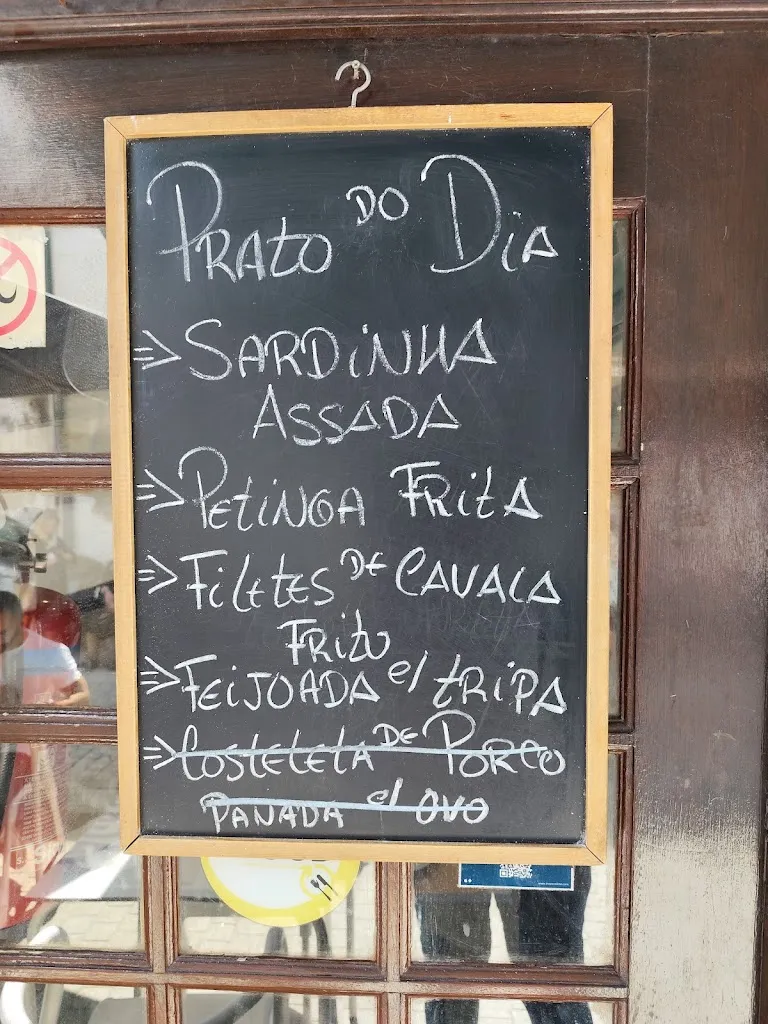 PRATO DO DIA
SARDINHA
ASSADA
PETINGA FRITA
FILETES DE CAVALA
FRITO
FEIJOADA c/ TRIPA
COSTELETA DE PORCO
PANADA c/ OVO